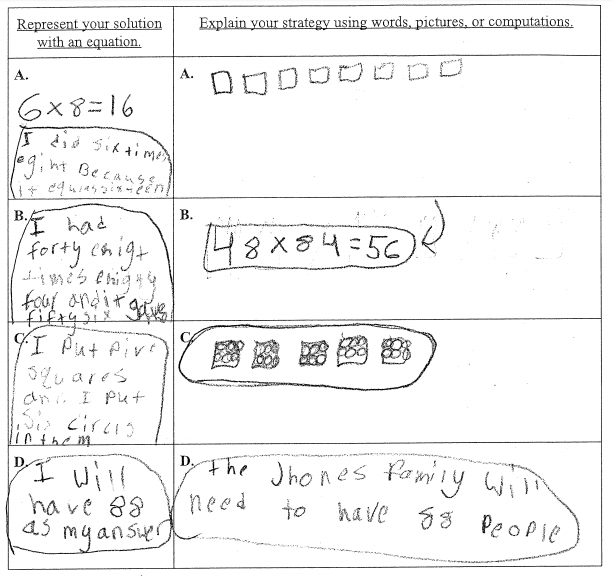 Represent your solution
with an equation.
Explain your strategy using words, pictures, or computations.
A.
6x8=16
I did six times
eight Because
it
A.
B.
I had
forty enigt
times enighty
four and it gave
fifty six
B.
48x84=56
C.
I put five
squares
and I put
circls
in them
C.
D.
I will
have 88
as my answer
D.
the Jhones family will
need to have 88 people